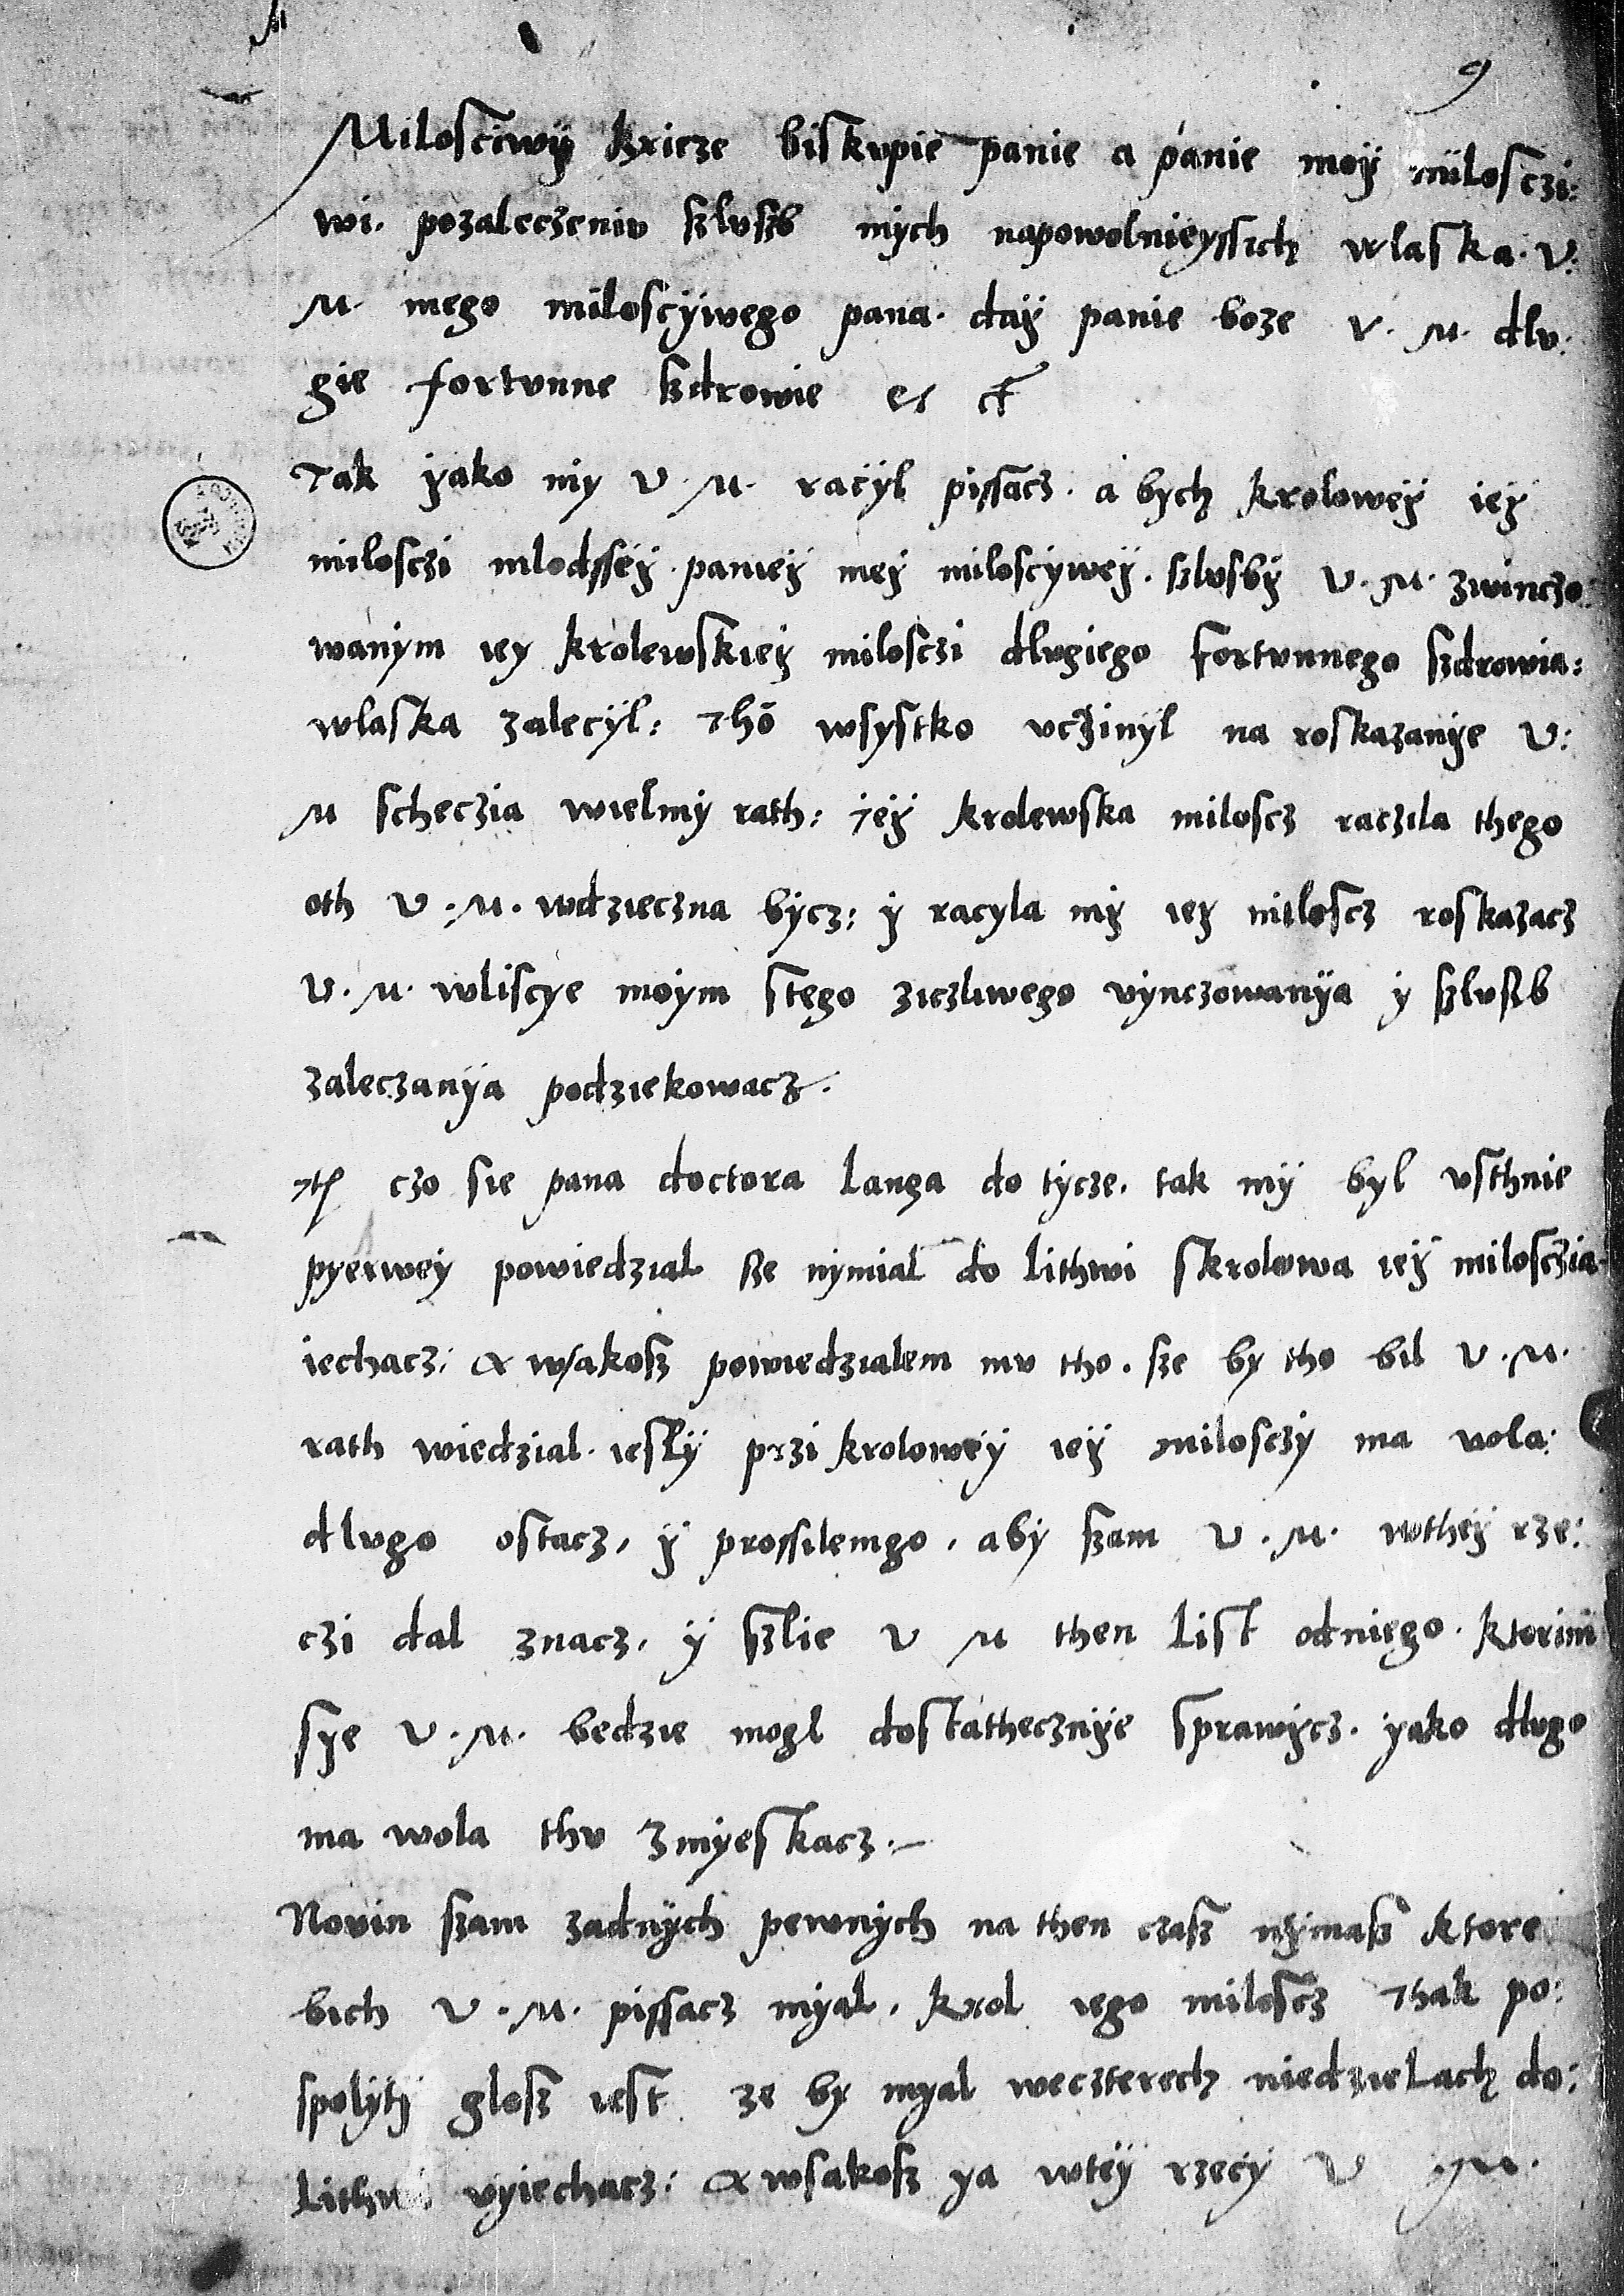 9
Milosciwÿ kxieze biskupie panie a panie moÿ milosczi:
wi. pozaleczeniu szlvszb mych napowolnieyssich wlaska. V:
M. mego milosciÿwego pana. daÿ panie boze V. M. dlv:
gie fortvnne szdrowie etc
Tak ÿako mÿ V. M. raciÿl pissacz. a bych kroloweÿ ieÿ
milosczi mlodsseÿ. panieÿ meÿ milosciyweÿ. szlvsbÿ V. M. zwinczo:
wanÿm iey krolewskieÿ milosczi dlvgiego fortvnnego szdrowia:
wlaska zaleciÿl: Tho wsystko vcziniÿl na roskazanÿe V:
M scheczia wielmÿ rath: Ieÿ krolewska miloscz raczila thego
oth V. M. wdzieczna bÿcz: ÿ racyla mÿ ieÿ miloscz roskazacz
V. M. wliscÿe moÿm stego ziczliwego vÿnczowanÿa ÿ szlvszb
zaleczanÿa podziekowacz.
Item czo sie pana doctora Langa do tÿcze. tak mÿ bÿl vsthnie
pÿerweÿ powiedzial sze nÿmial do Lithwi skrolowa ieÿ milosczia
iechacz: A wsakosz powiedzialem mv tho. sze bÿ tho bil V. M.
rath wiedzial. ieslÿ przi kroloweÿ ieÿ milosczÿ ma vola:
dlvgo ostacz, ÿ prossilemgo, abÿ szam V. M. wtheÿ rze:
czi dal znacz, ÿ szlie V M then List odniego. ktorim
sÿe V. M. bedzie mogl dostathecznÿe sprawÿcz. ÿako dlvgo
ma wola thv zmÿeskacz.
Novin szam zadnÿch pewnÿch na then czasz nÿmasz ktore
bich V. M. pissacz mÿal. krol iego miloscz Thak po:
spolÿtÿ glosz iest ze bÿ mÿal weczterech niedzielach do:
Lithwi vÿiechacz: A wsakosz ÿa wteÿ rzecÿ V M.